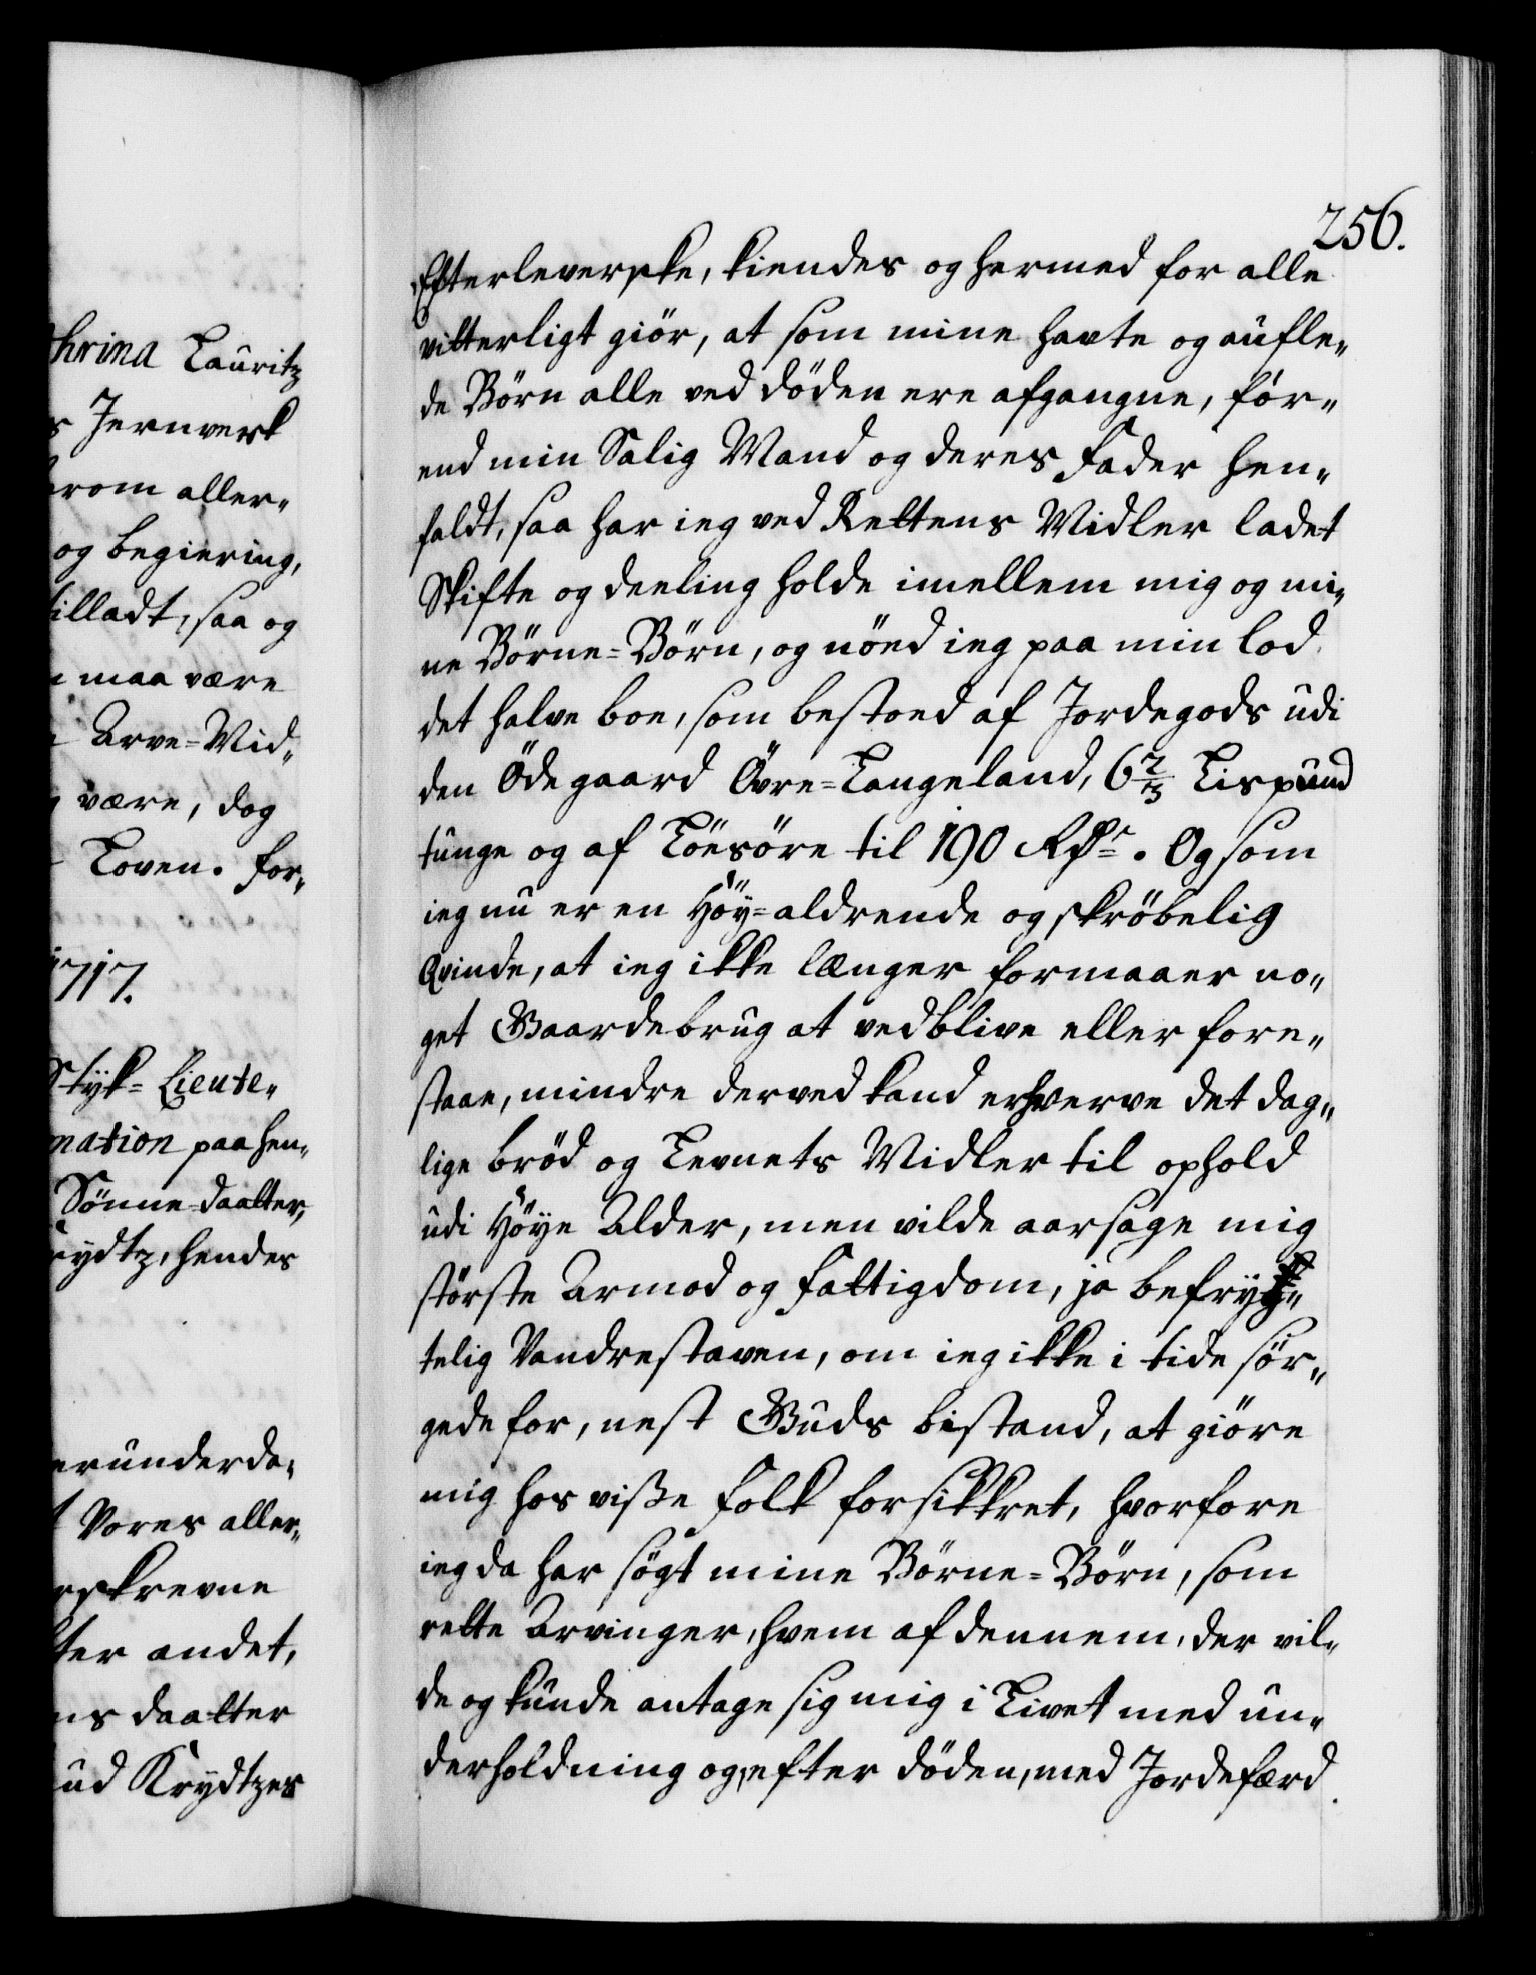 hrina Lauritz
s Jernverk
rom aller„
og begiering,
illadt, saa og
maa være
Arve=Mid„
være, dog
Loven. For„
1717.
Styk= Lieute„
mation paa hen„
Sönne=daatter,
rydtz, hendes
erunderda„
t Vores aller„
rskrevne
ter andet,
ns daatter
ud Krydtzes
256.
Efterleverske, kiendes og hermed for alle
vitterligt giör, at som mine havte og aufle„
de Börn alle ved döden ere afgangne, för„
end min Salig Mand og deres Fader hen„
faldt, saa har ieg ved Rettens Midler ladet
Skifte og deeling holde imellem mig og mi„
ne Börne=Börn, og nöed ieg paa min lod
det halve boe, som bestoed af Jordegods udi
den Öde gaard Övre=Langeland, 6 2/3 Lispund
tunge og af Löesöre til 190 Rdr. Og som
ieg nu er en Höy=aldrende og skröbelig
Qvinde, at ieg ikke længer formaaer no„
get Gaardebrug at vedblive eller fore„
staae, mindre derved kand erhverve det dag„
lige bröd og Levnets Midler til ophold
udi Höye Alder, men vilde aarsage mig
störste Armod og Fattigdom, ja befryg„
telig Vandrestaven, om ieg ikke i tide sör„
gede for, nest Guds bistand, at giöre
mig hos visse folk forsikkret, hvorfore
ieg da har sögt mine Börne=Börn, som
rette Arvinger, hvem af dennem, der vil„
de og kunde antage sig mig i Livet med un„
derholdning og, efter döden, med Jordefærd